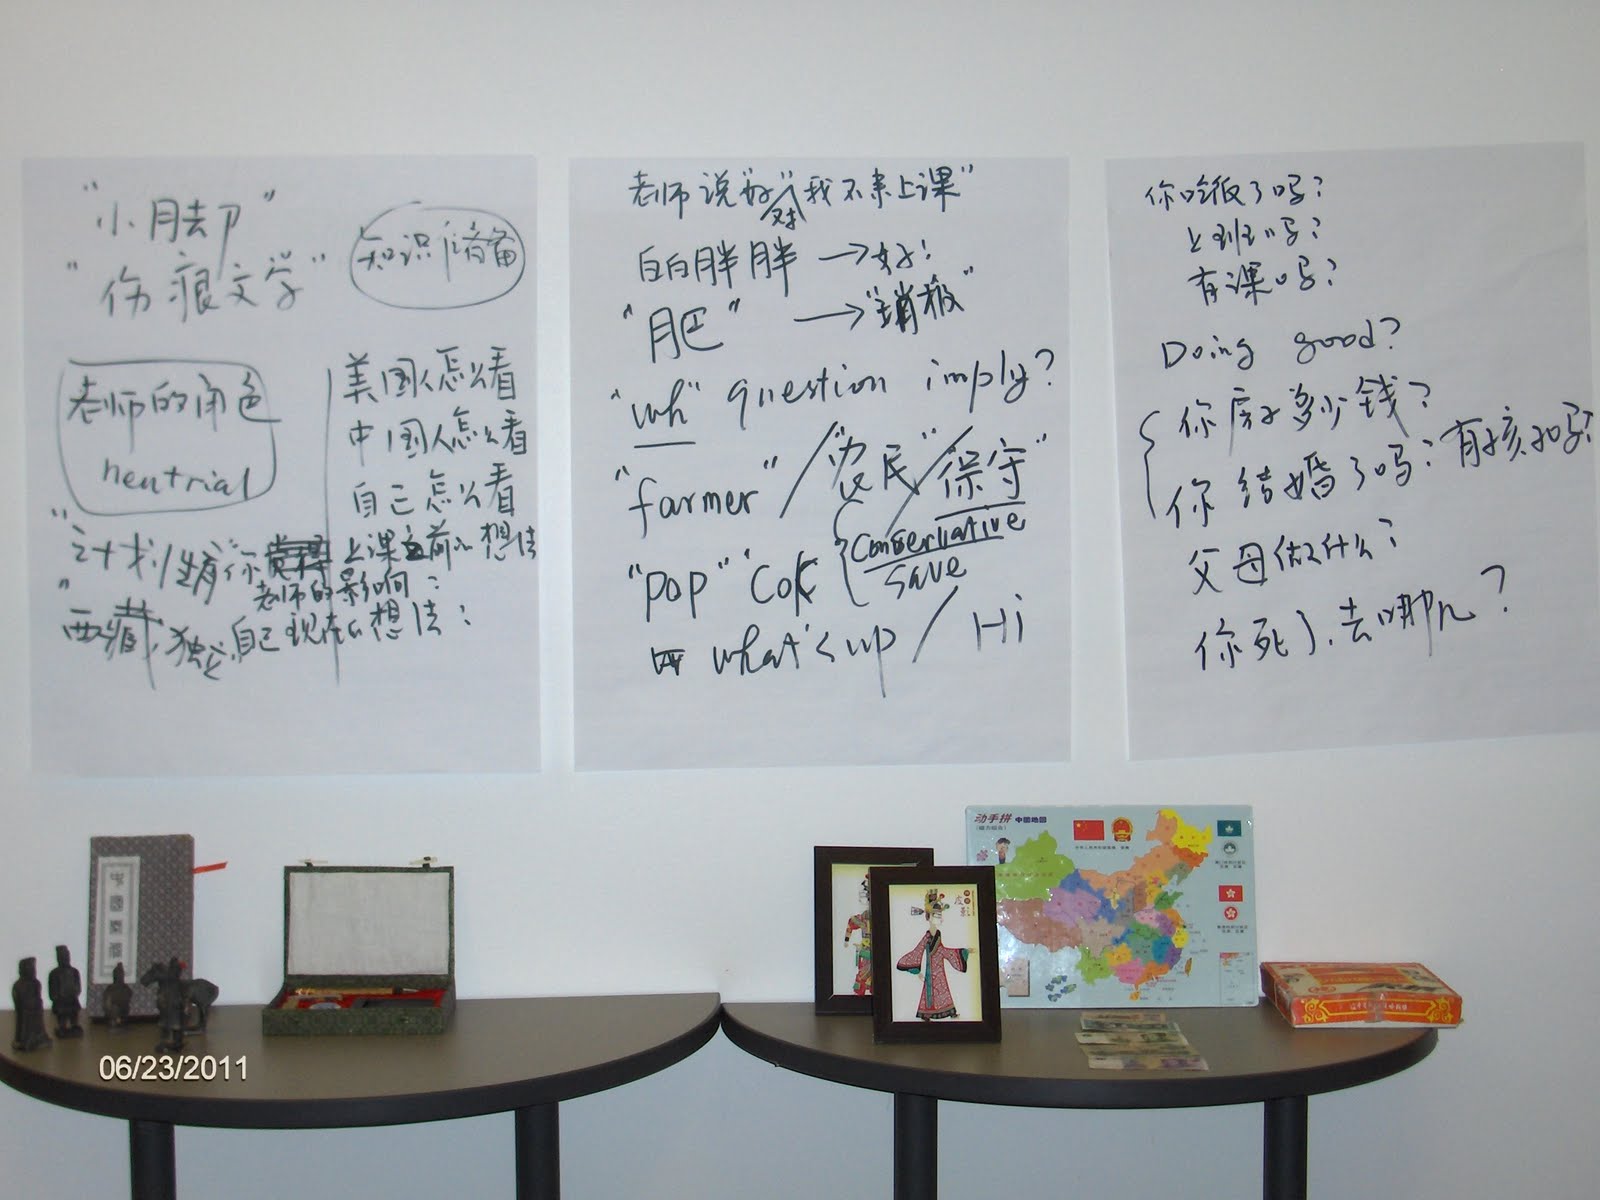 "小脚"
"伤痕文学"
知识储备
老师的角色
neutrial
美国人怎么看
中国人怎么看
自己怎么看
"计划生育 你 上课之前的想法
老师的影响?
"西藏独立 自己现在的想法?
老师说"好 对 我不来上课"
白白胖胖 → 好!
"肥" →
"wh" question imply?
"farmer" / "农民" / "保守"
"pop" "Cok { Conservative
save
what's up / Hi
你吃饭了吗?
上班吗?
有课吗?
Doing good?
你房子多少钱?
你结婚了吗? 有孩子吗?
父母做什么?
你死了,去哪儿?
动手拼 中国地图
皮影
06/23/2011